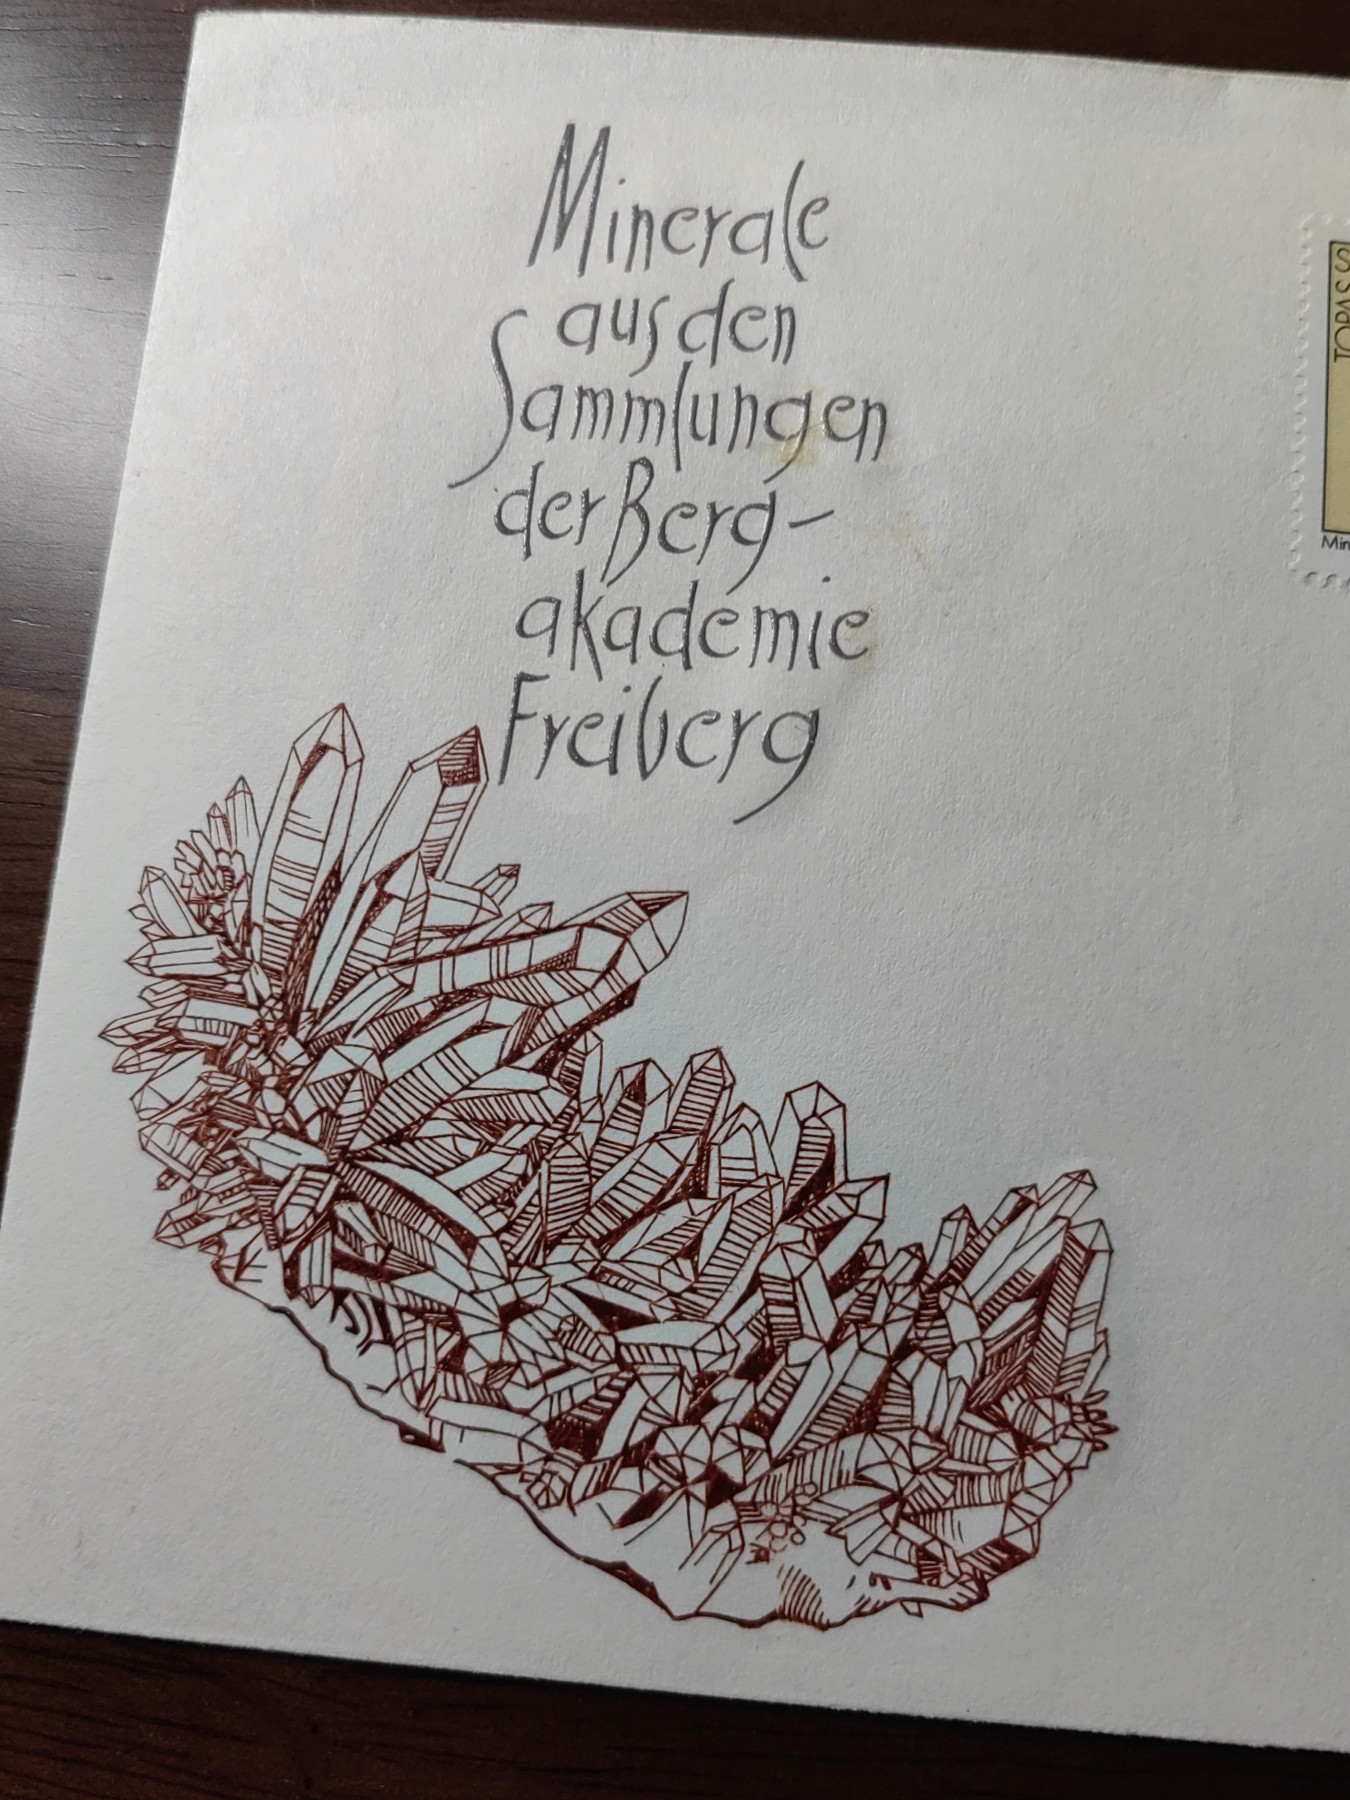 Minerale
aus den
Sammlungen
der Berg-
akademie
Freiberg
TOPAS